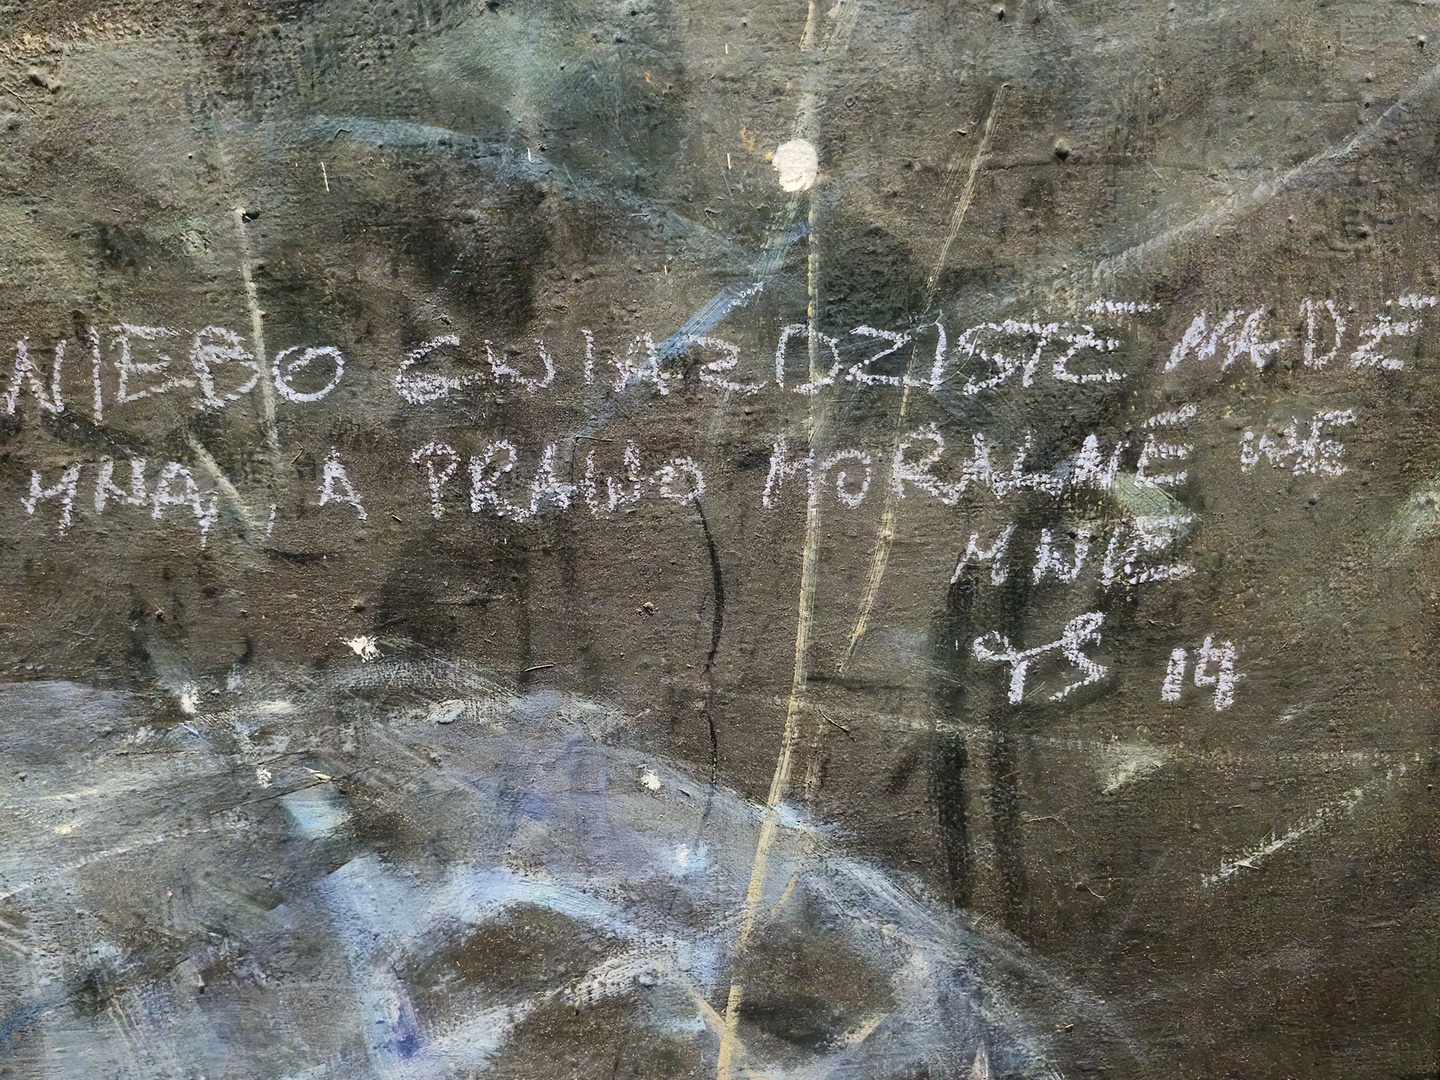 NIEBO GWIAŹDZISTE NADE
MNĄ, A PRAWO MORALNE WE
MNIE